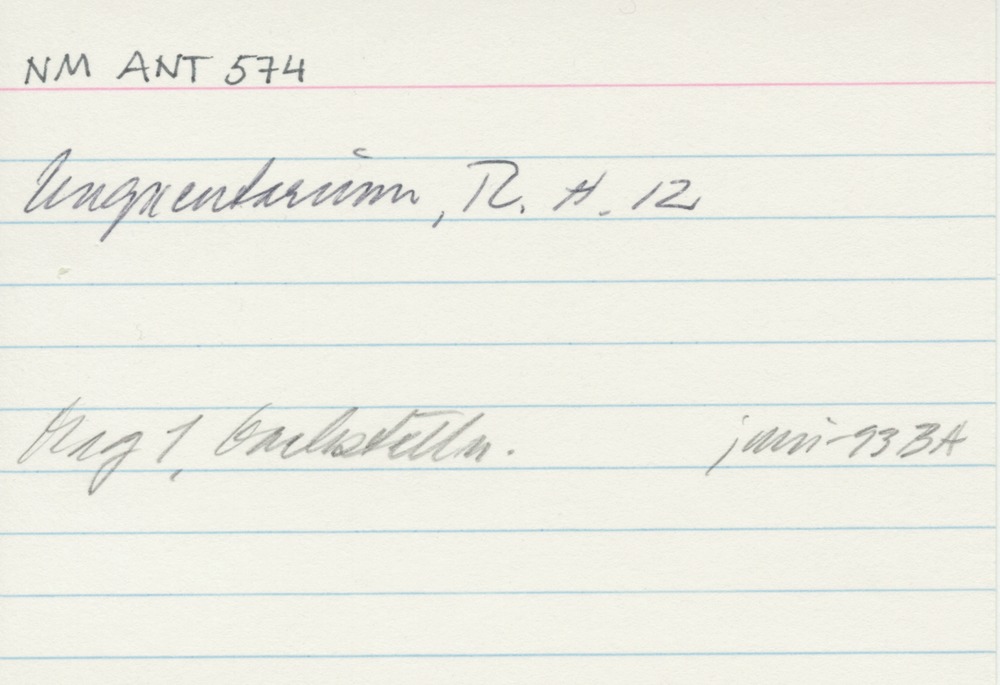 NM ANT 574
Unguentarium, R. H. 12
Mag 1, juni-93 BA